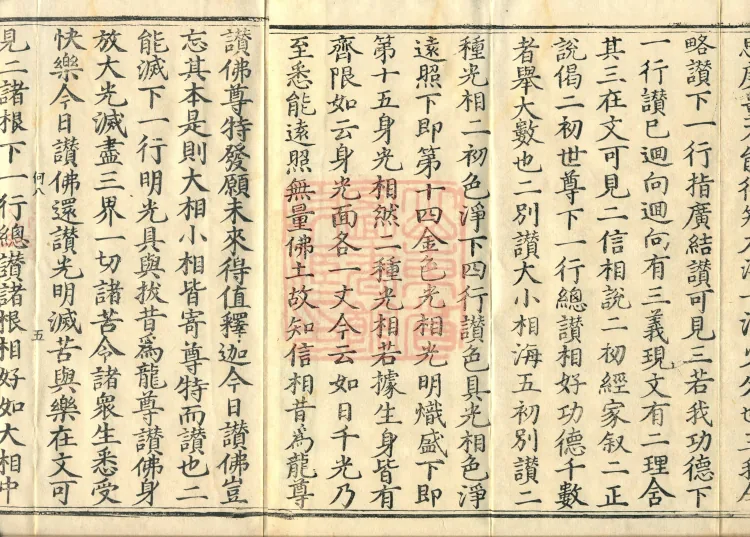 略讚下一行指廣結讚可見三若我功德下
一行讚已迴向迴向有三義現文有二理舍
其三在文可見二信相說二初經家叙二正
說偈二初世尊下一行總讚相好功德千數
者舉大數也二別讚大小相海五初別讚二
種光相二初色淨下四行讚色具光相色淨
遠照下即第十四金色光相光明熾盛下即
第十五身光相然二種光相若據生身皆有
齊限如云身光面各一丈今云如日千光乃
至悉能遠照無量佛土故知信相昔為龍尊
讚佛尊特發願未來得值釋迦今日讚佛豈
忘其本是則大相小相皆寄尊特而讚也二
能滅下一行明光具與拔昔為龍尊讚佛身
放大光滅盡三界一切諸苦令諸衆生悉受
快樂今日讚佛還讚光明滅苦與樂在文可
何八
五
見二諸根下一行總讚諸根相好如大相中